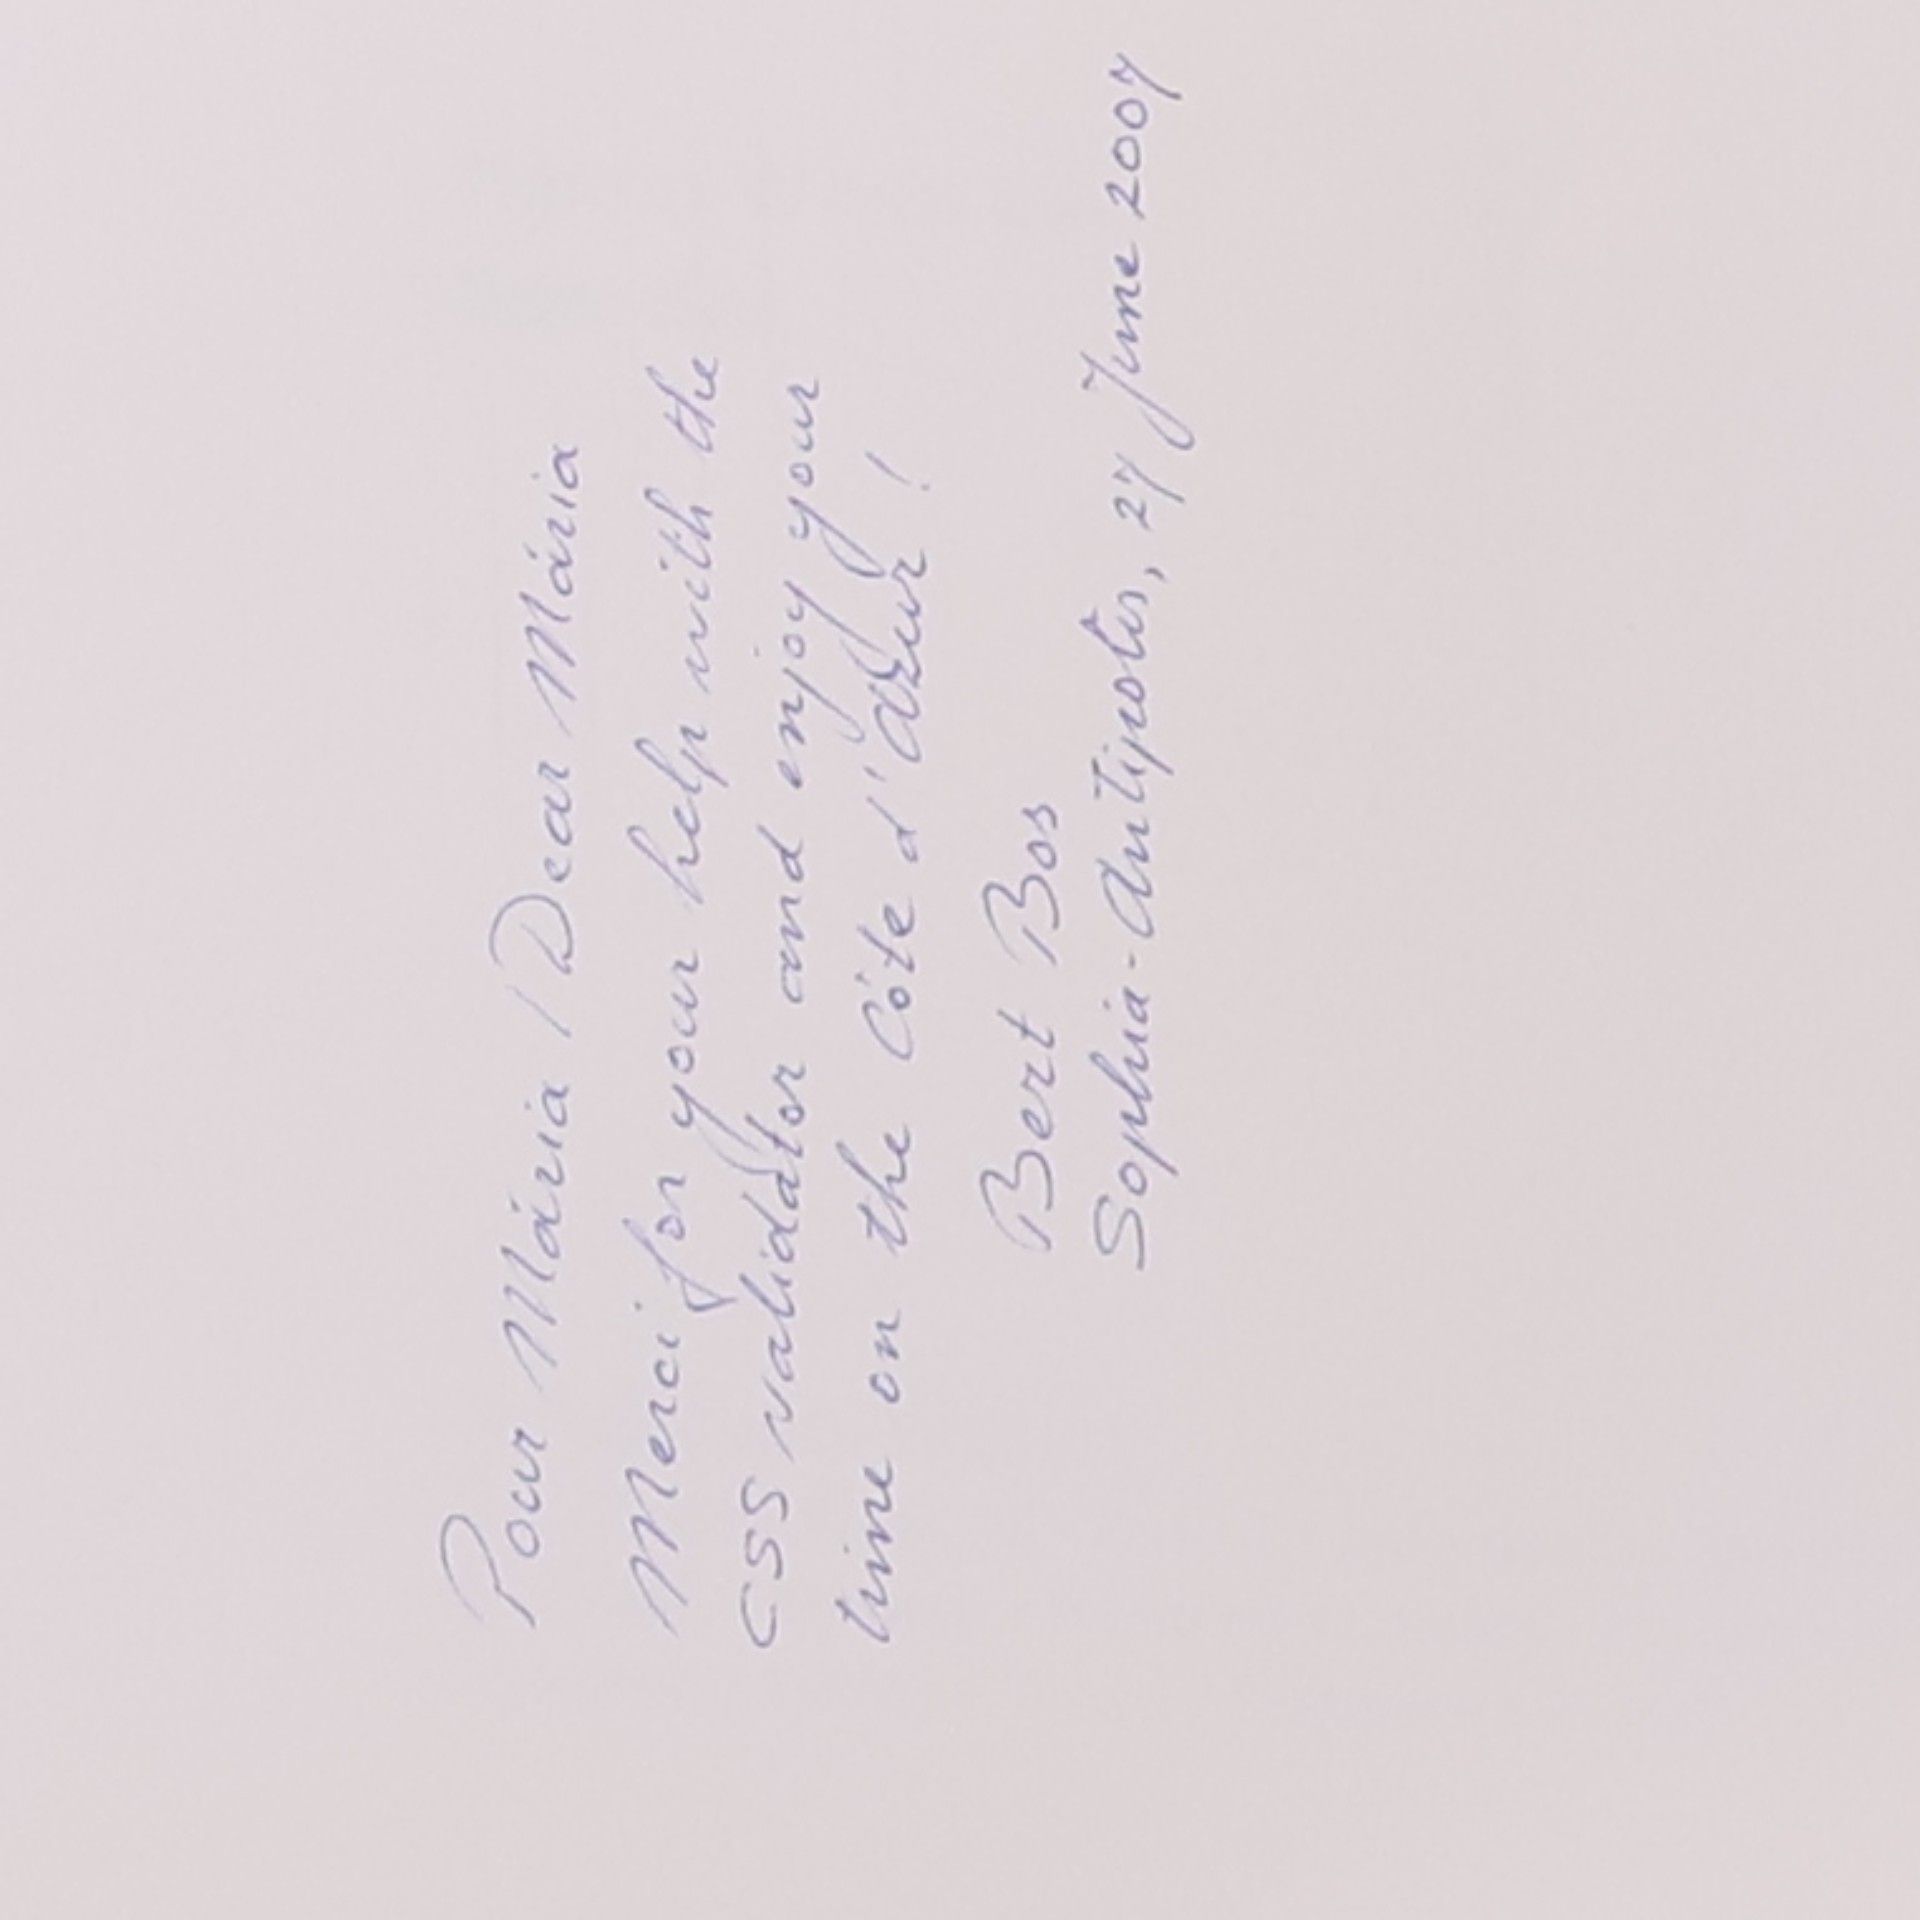 Pour Mária / Dear Mária
Merci for your help with the
CSS validator and enjoy your
time on the Côte d'Azur!
Bert Bos
Sophia-Antipolis, 27 June 2007